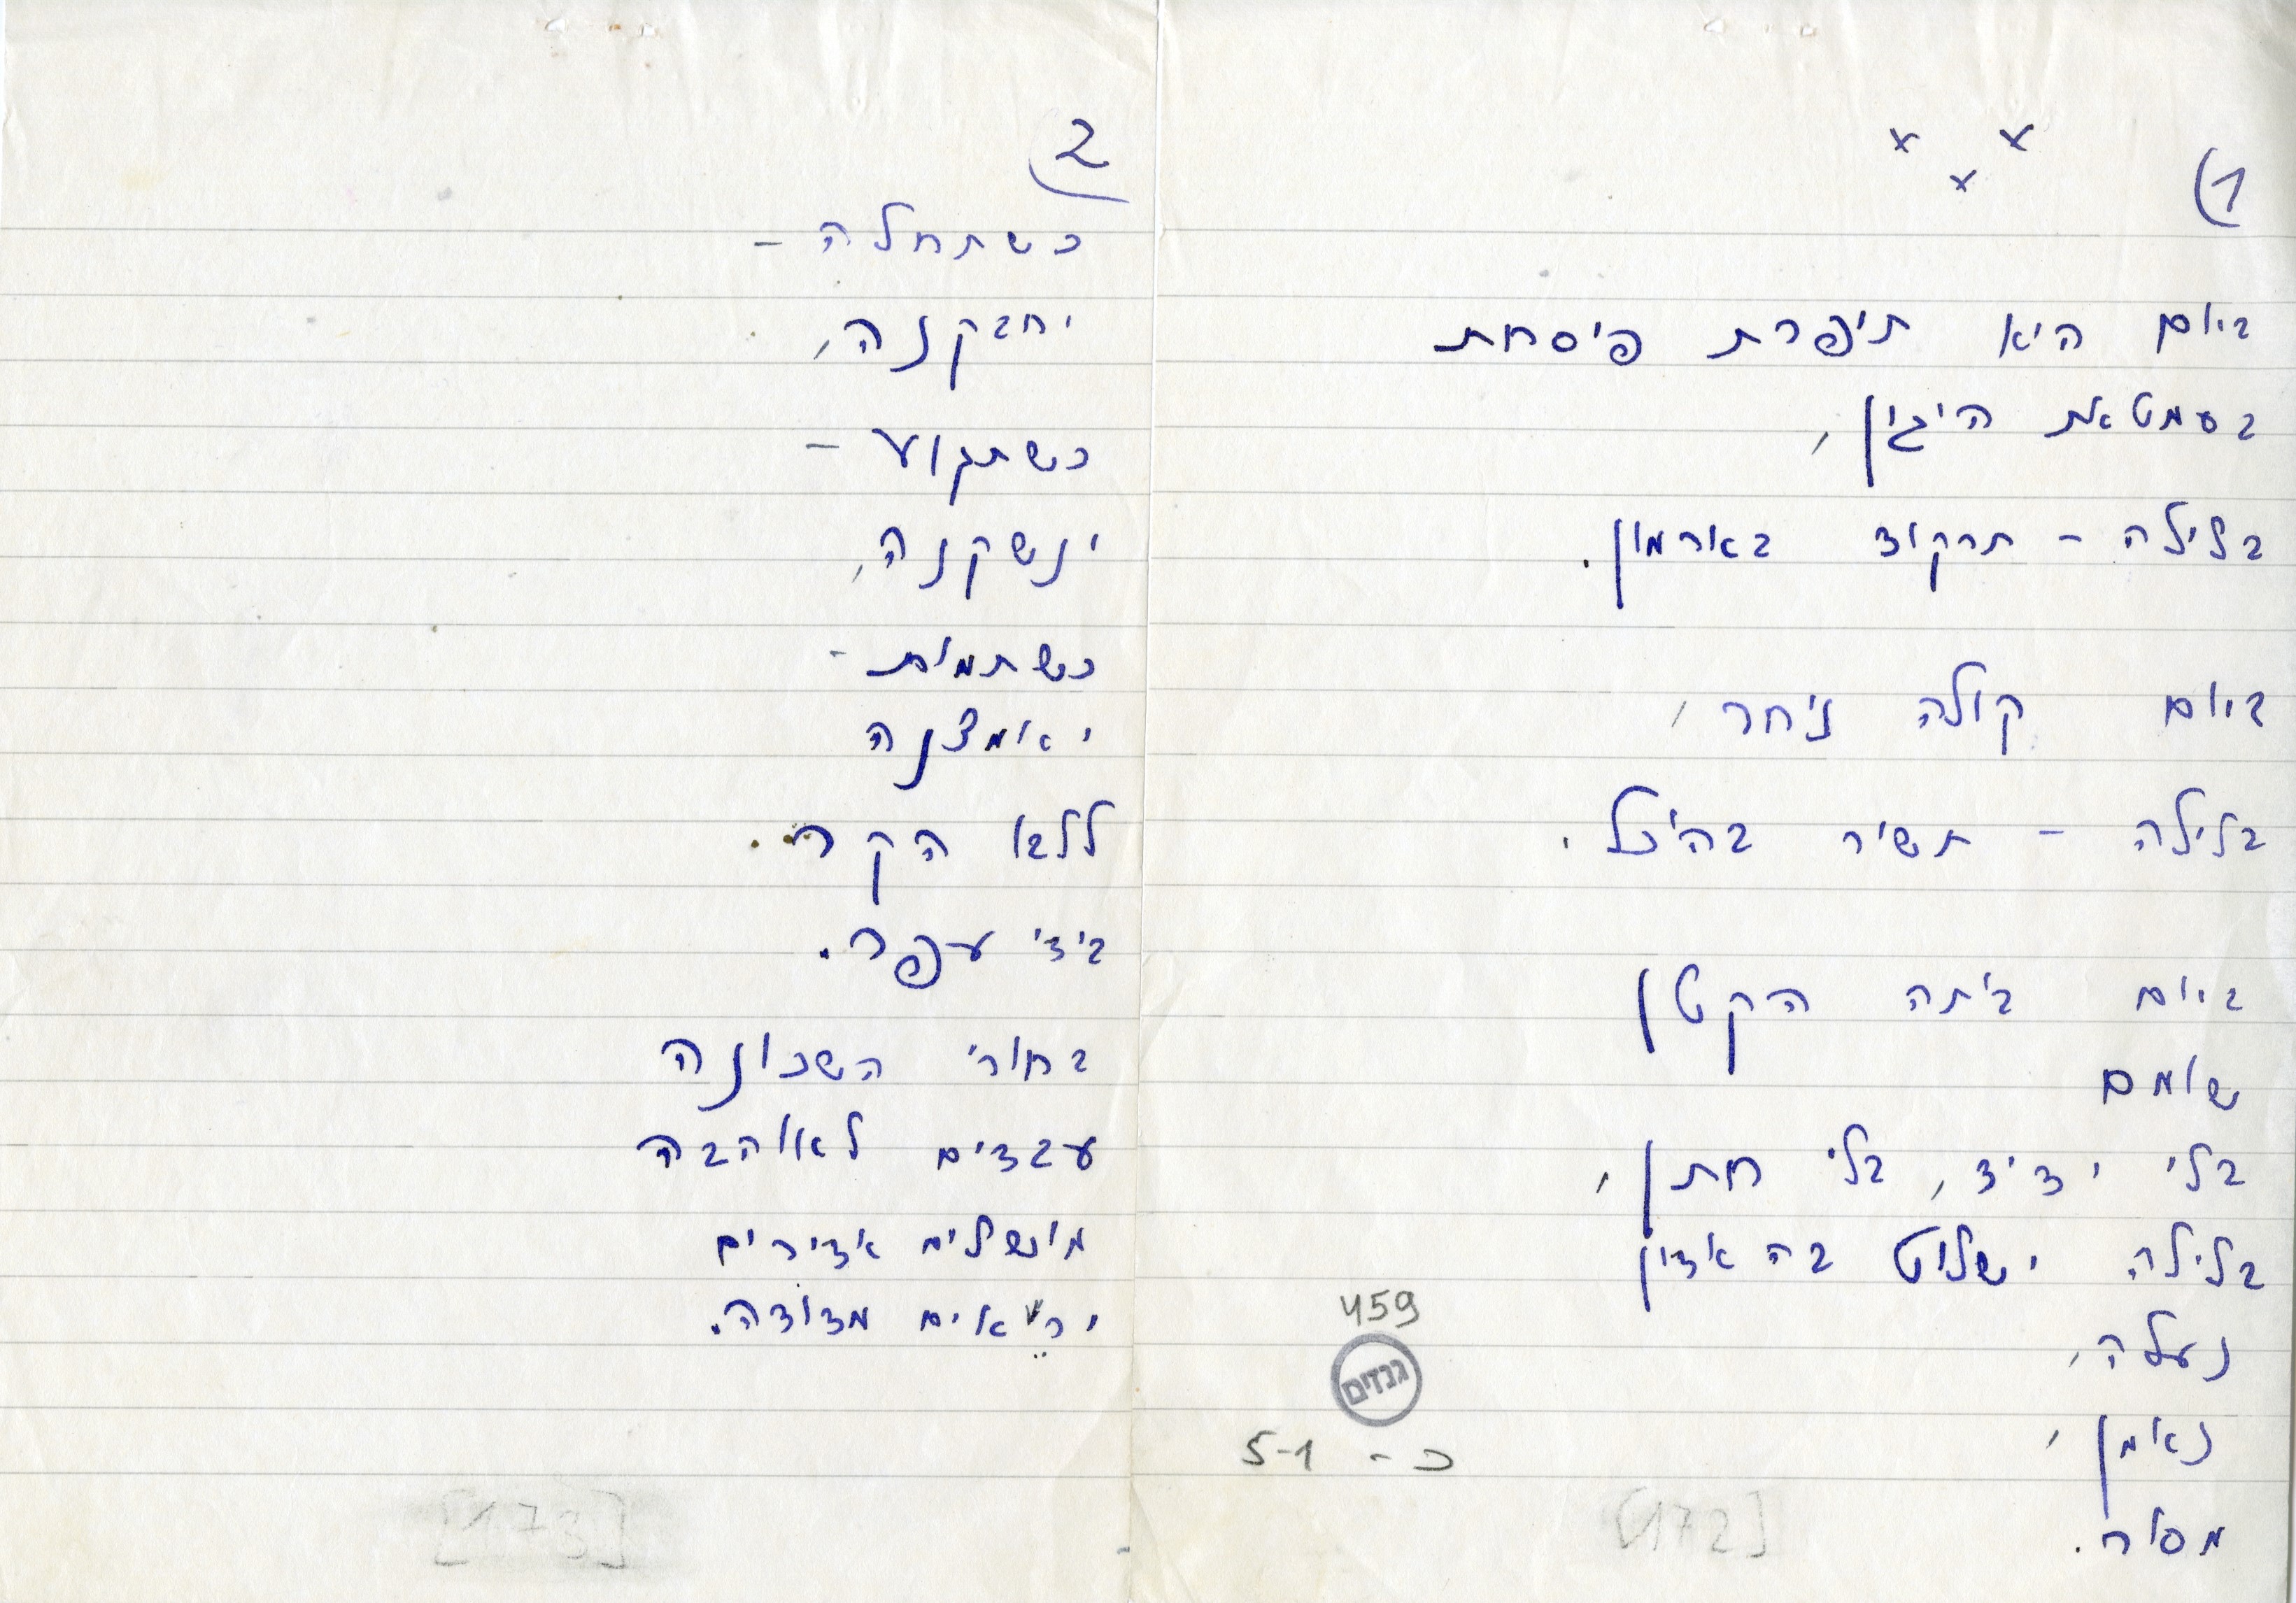 1)
x x
x
ביום היא תיפרת פיסחת
בסמטאת היגון,
בלילה - תרקוד בארמון.
ביום קולה ניחר,
בלילה - תשיר בהיכל.
ביום ביתה הקטן
שומם
בלי ידיד, בלי חתן,
בלילה ישלוט בה אדון
נעלה,
נאמן,
מסור.
459
גנזים
כ - 5-1
[172]
2)
כשתחלה -
יחבקנה,
כשתגווע -
ינשקנה,
כשתמות -
יאומצנה
ללבו הקר.
בידי עפר.
בחורי השכונה
עבדים לאוהבה
מושלים אדירים
יראים מדודה.
[173]